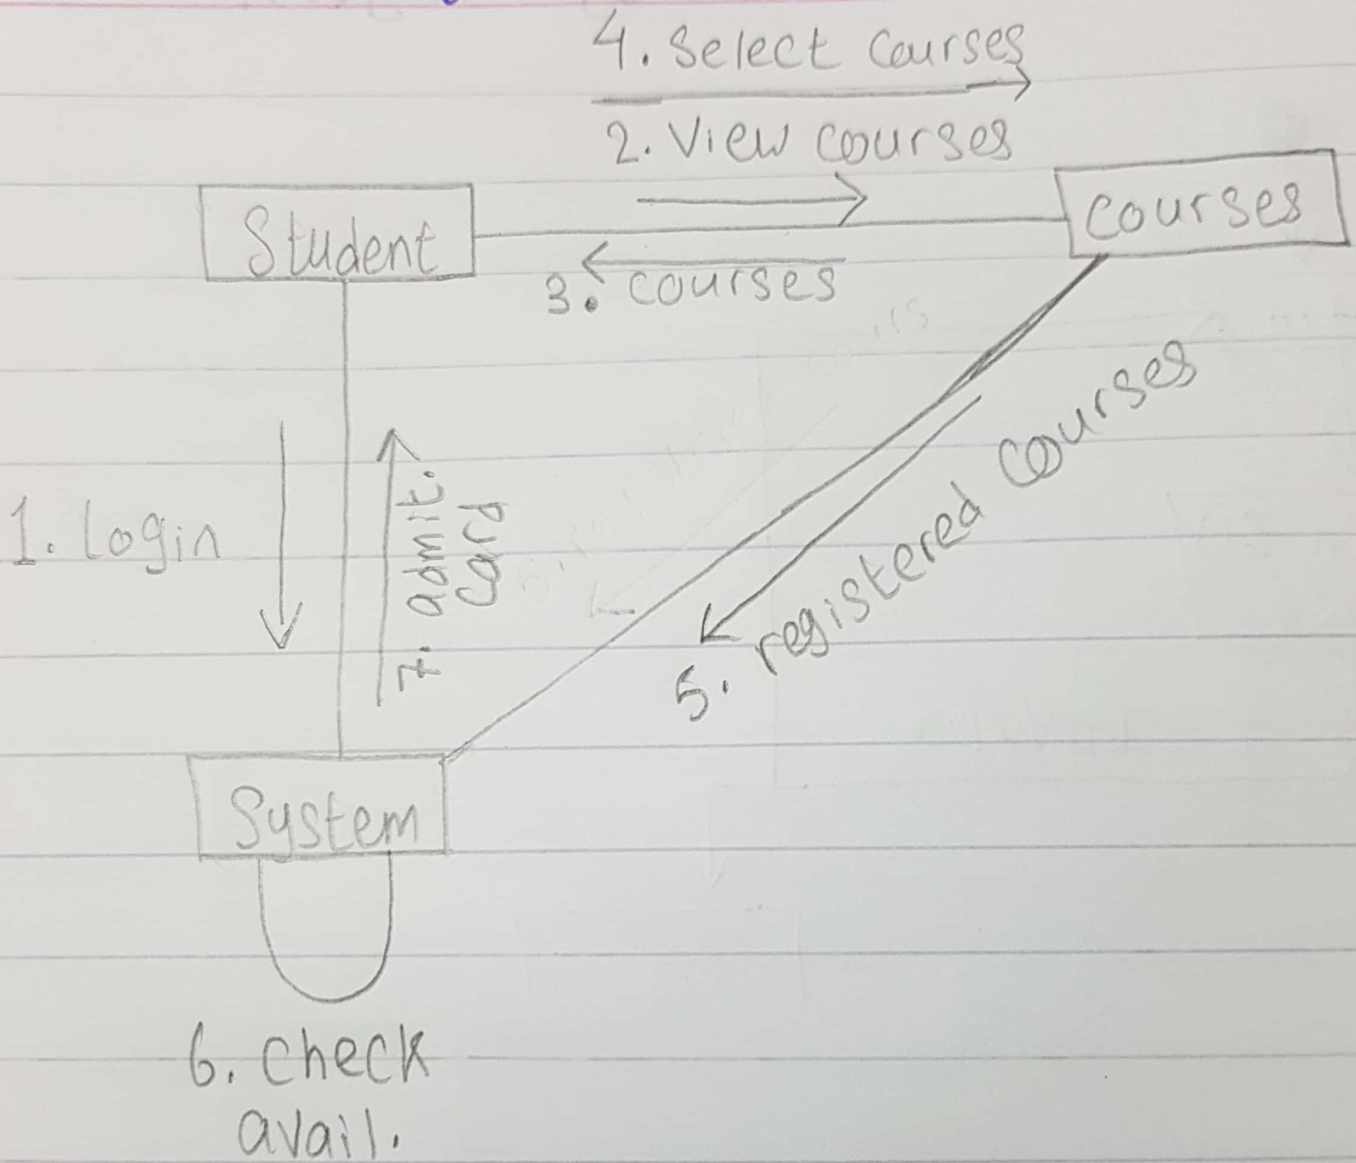 4. Select Courses
2. View courses
Student
courses
3. courses
1. Login
7. admit.
card
5. registered courses
System
6. check
avail.